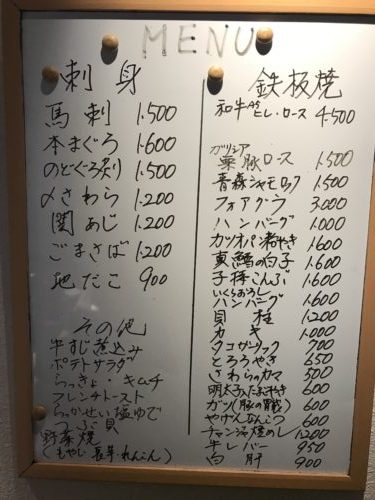 MENU
刺身
馬刺 1.500
本まぐろ 1.600
のどぐろ炙り 1.500
〆さわら 1.200
関あじ 1.200
ごまさば 1.200
地だこ 900
その他
牛すじ煮込み
ポテトサラダ
らっきょ・キムチ
フレンチトースト
らっかせい塩ゆで
つぶ貝
野菜焼
(もやし、長芋、れんこん)
鉄板焼
和牛ヒレ・ロース 4.500
ガリシア
栗豚ロース 1.500
青森シャモロック 1.500
フォアグラ 3.000
ハンバーグ 1.000
カツオバター焼き 1.600
真鱈の白子 1.600
子持こんぶ 1.600
いくらおろし
ハンバーグ 1.600
貝柱 1.200
カキ 1.000
タコガーリック 700
とろろやき 650
さわらのカマ 500
明太子入たまごやき 600
ガツ(豚の胃袋) 600
やげんなんこつ 600
チャンジャ焼めし 1200
牛レバー 950
白肝 900